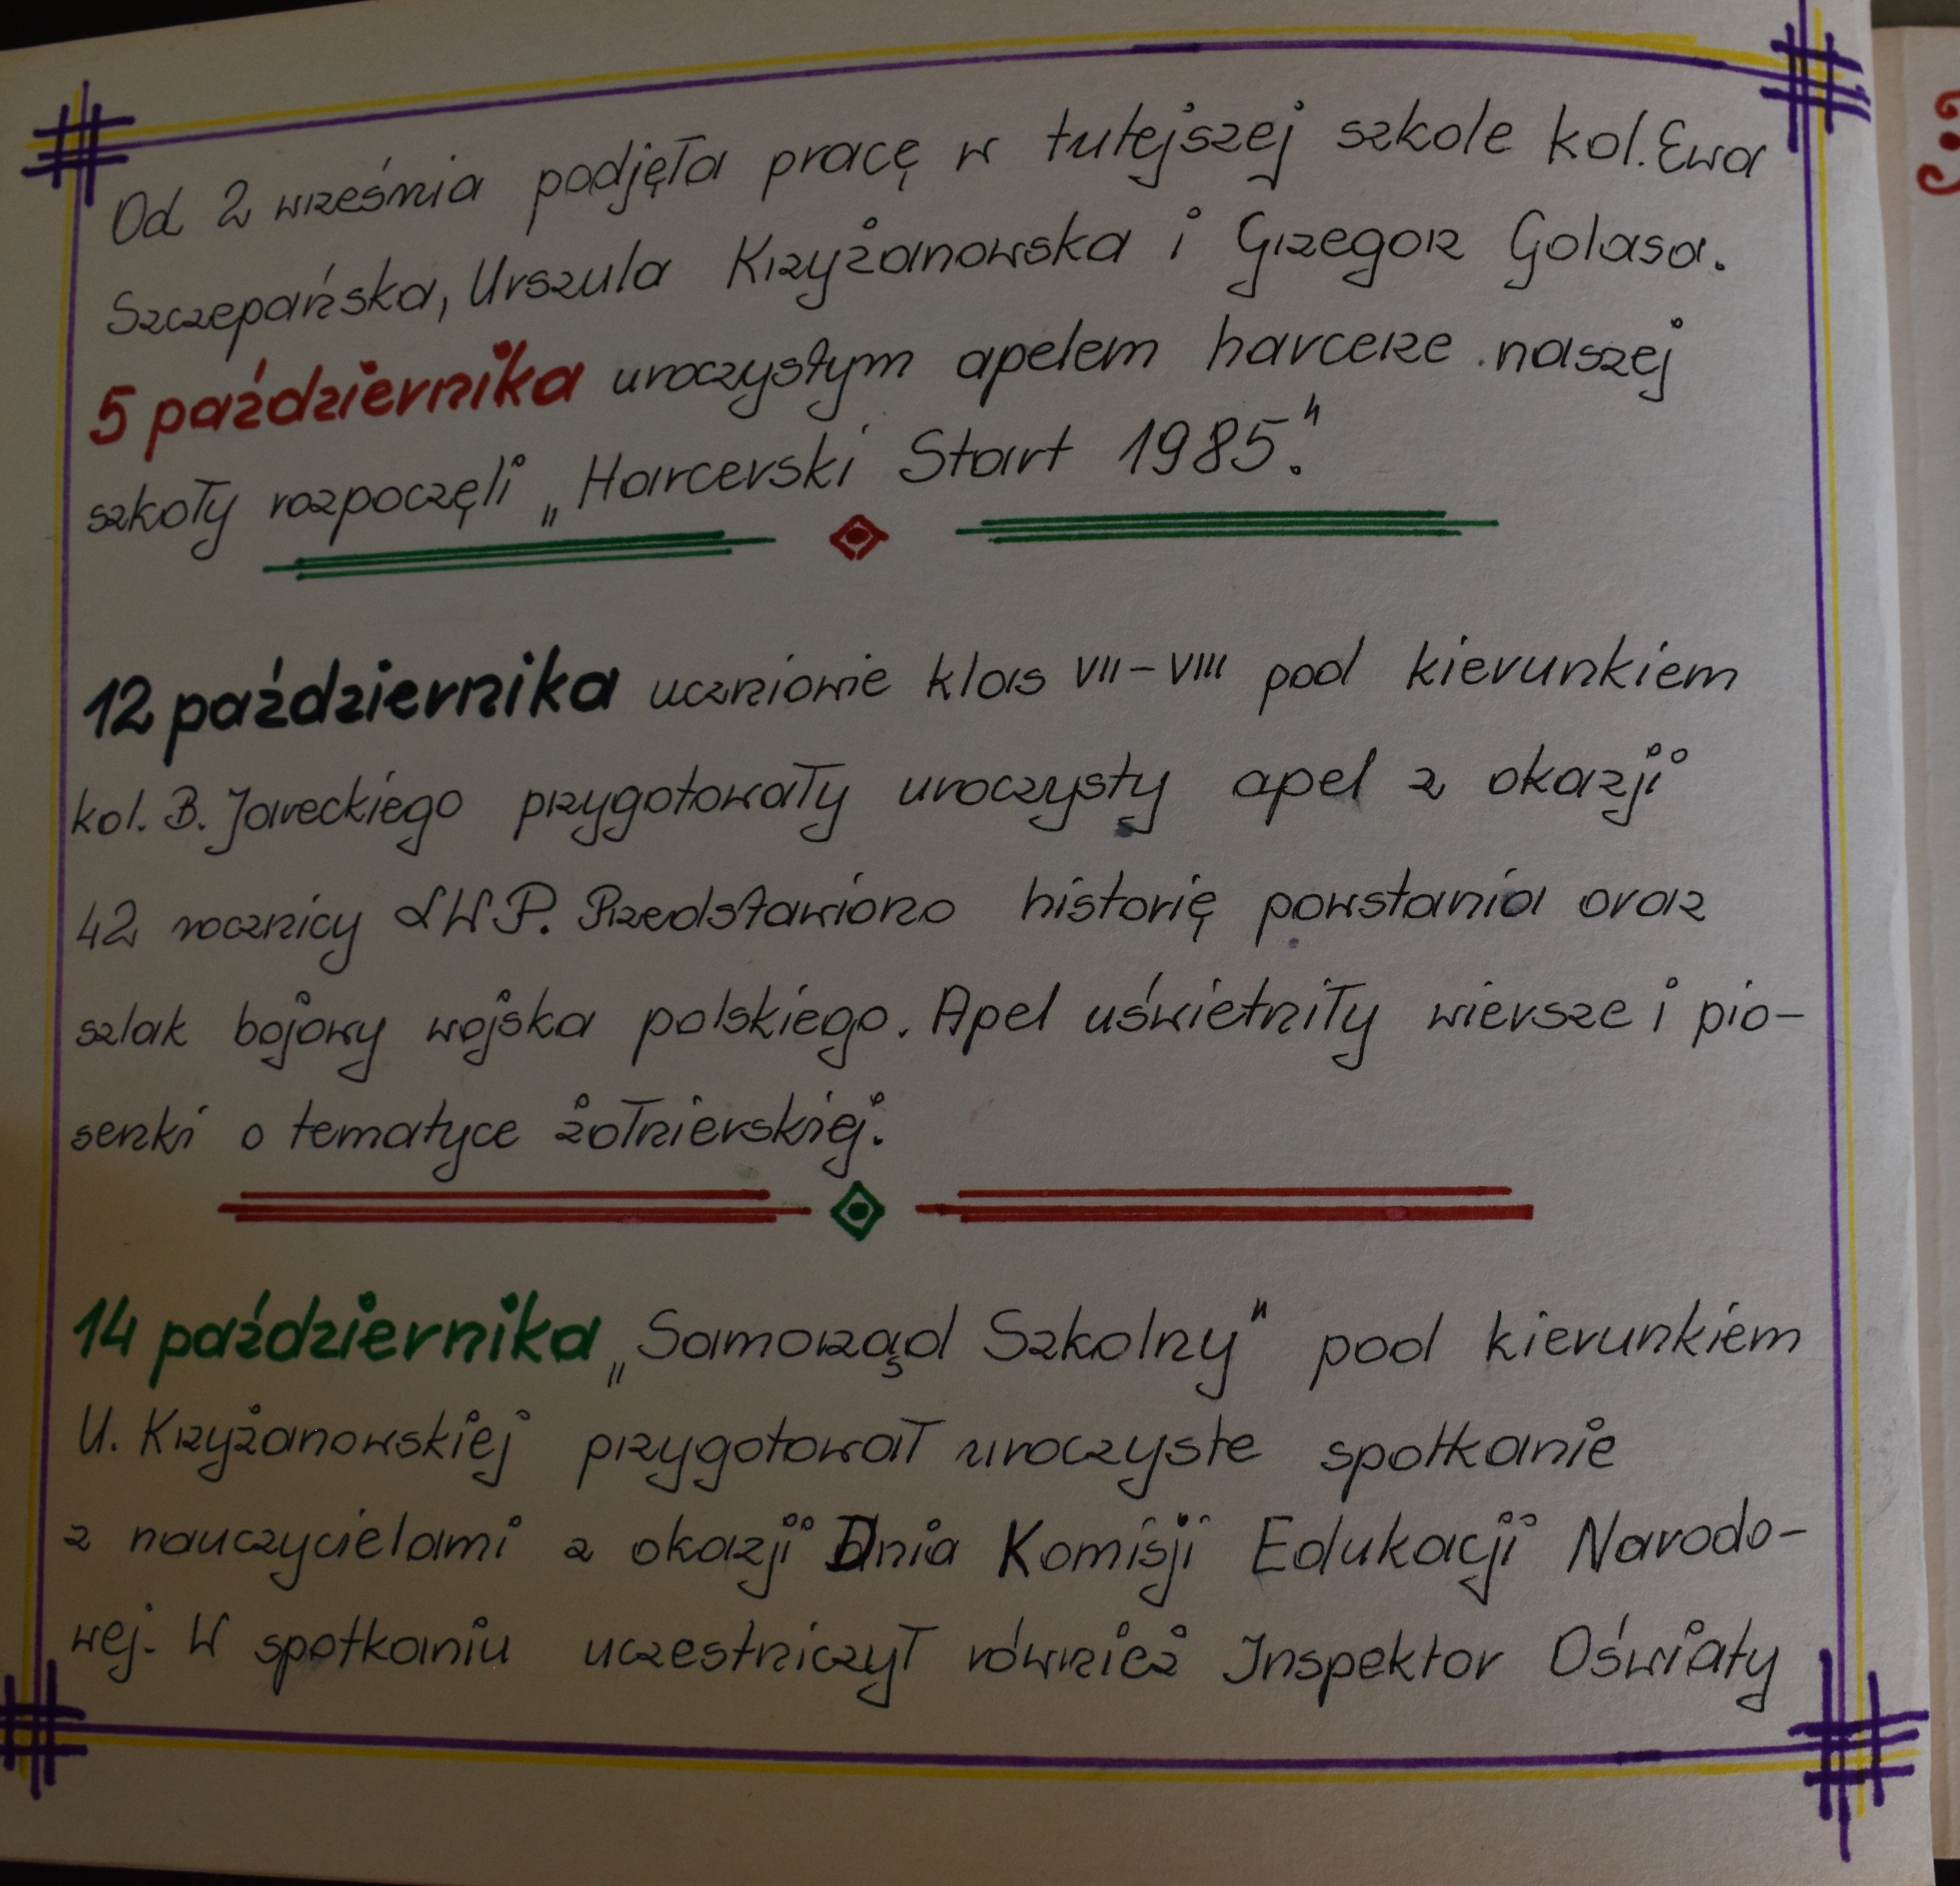 Od 2 września podjęła pracę w tutejszej szkole kol. Ewa
Szczepańska, Urszula Krzyżanowska i Grzegorz Golasa.
5 października uroczystym apelem harcerze naszej
szkoły rozpoczęli „Harcerski Start 1985."
12 października uczniowie klas VII-VIII pod kierunkiem
kol. B. Jareckiego przygotowały uroczysty apel z okazji
42 rocznicy LWP. Przedstawiono historię powstania oraz
szlak bojowy wojska polskiego. Apel uświetniły wiersze i pio-
senki o tematyce żołnierskiej.
14 października „Samorząd Szkolny" pod kierunkiem
U. Krzyżanowskiej przygotował uroczyste spotkanie
z nauczycielami z okazji Dnia Komisji Edukacji Narodo-
wej. W spotkaniu uczestniczył również Inspektor Oświaty